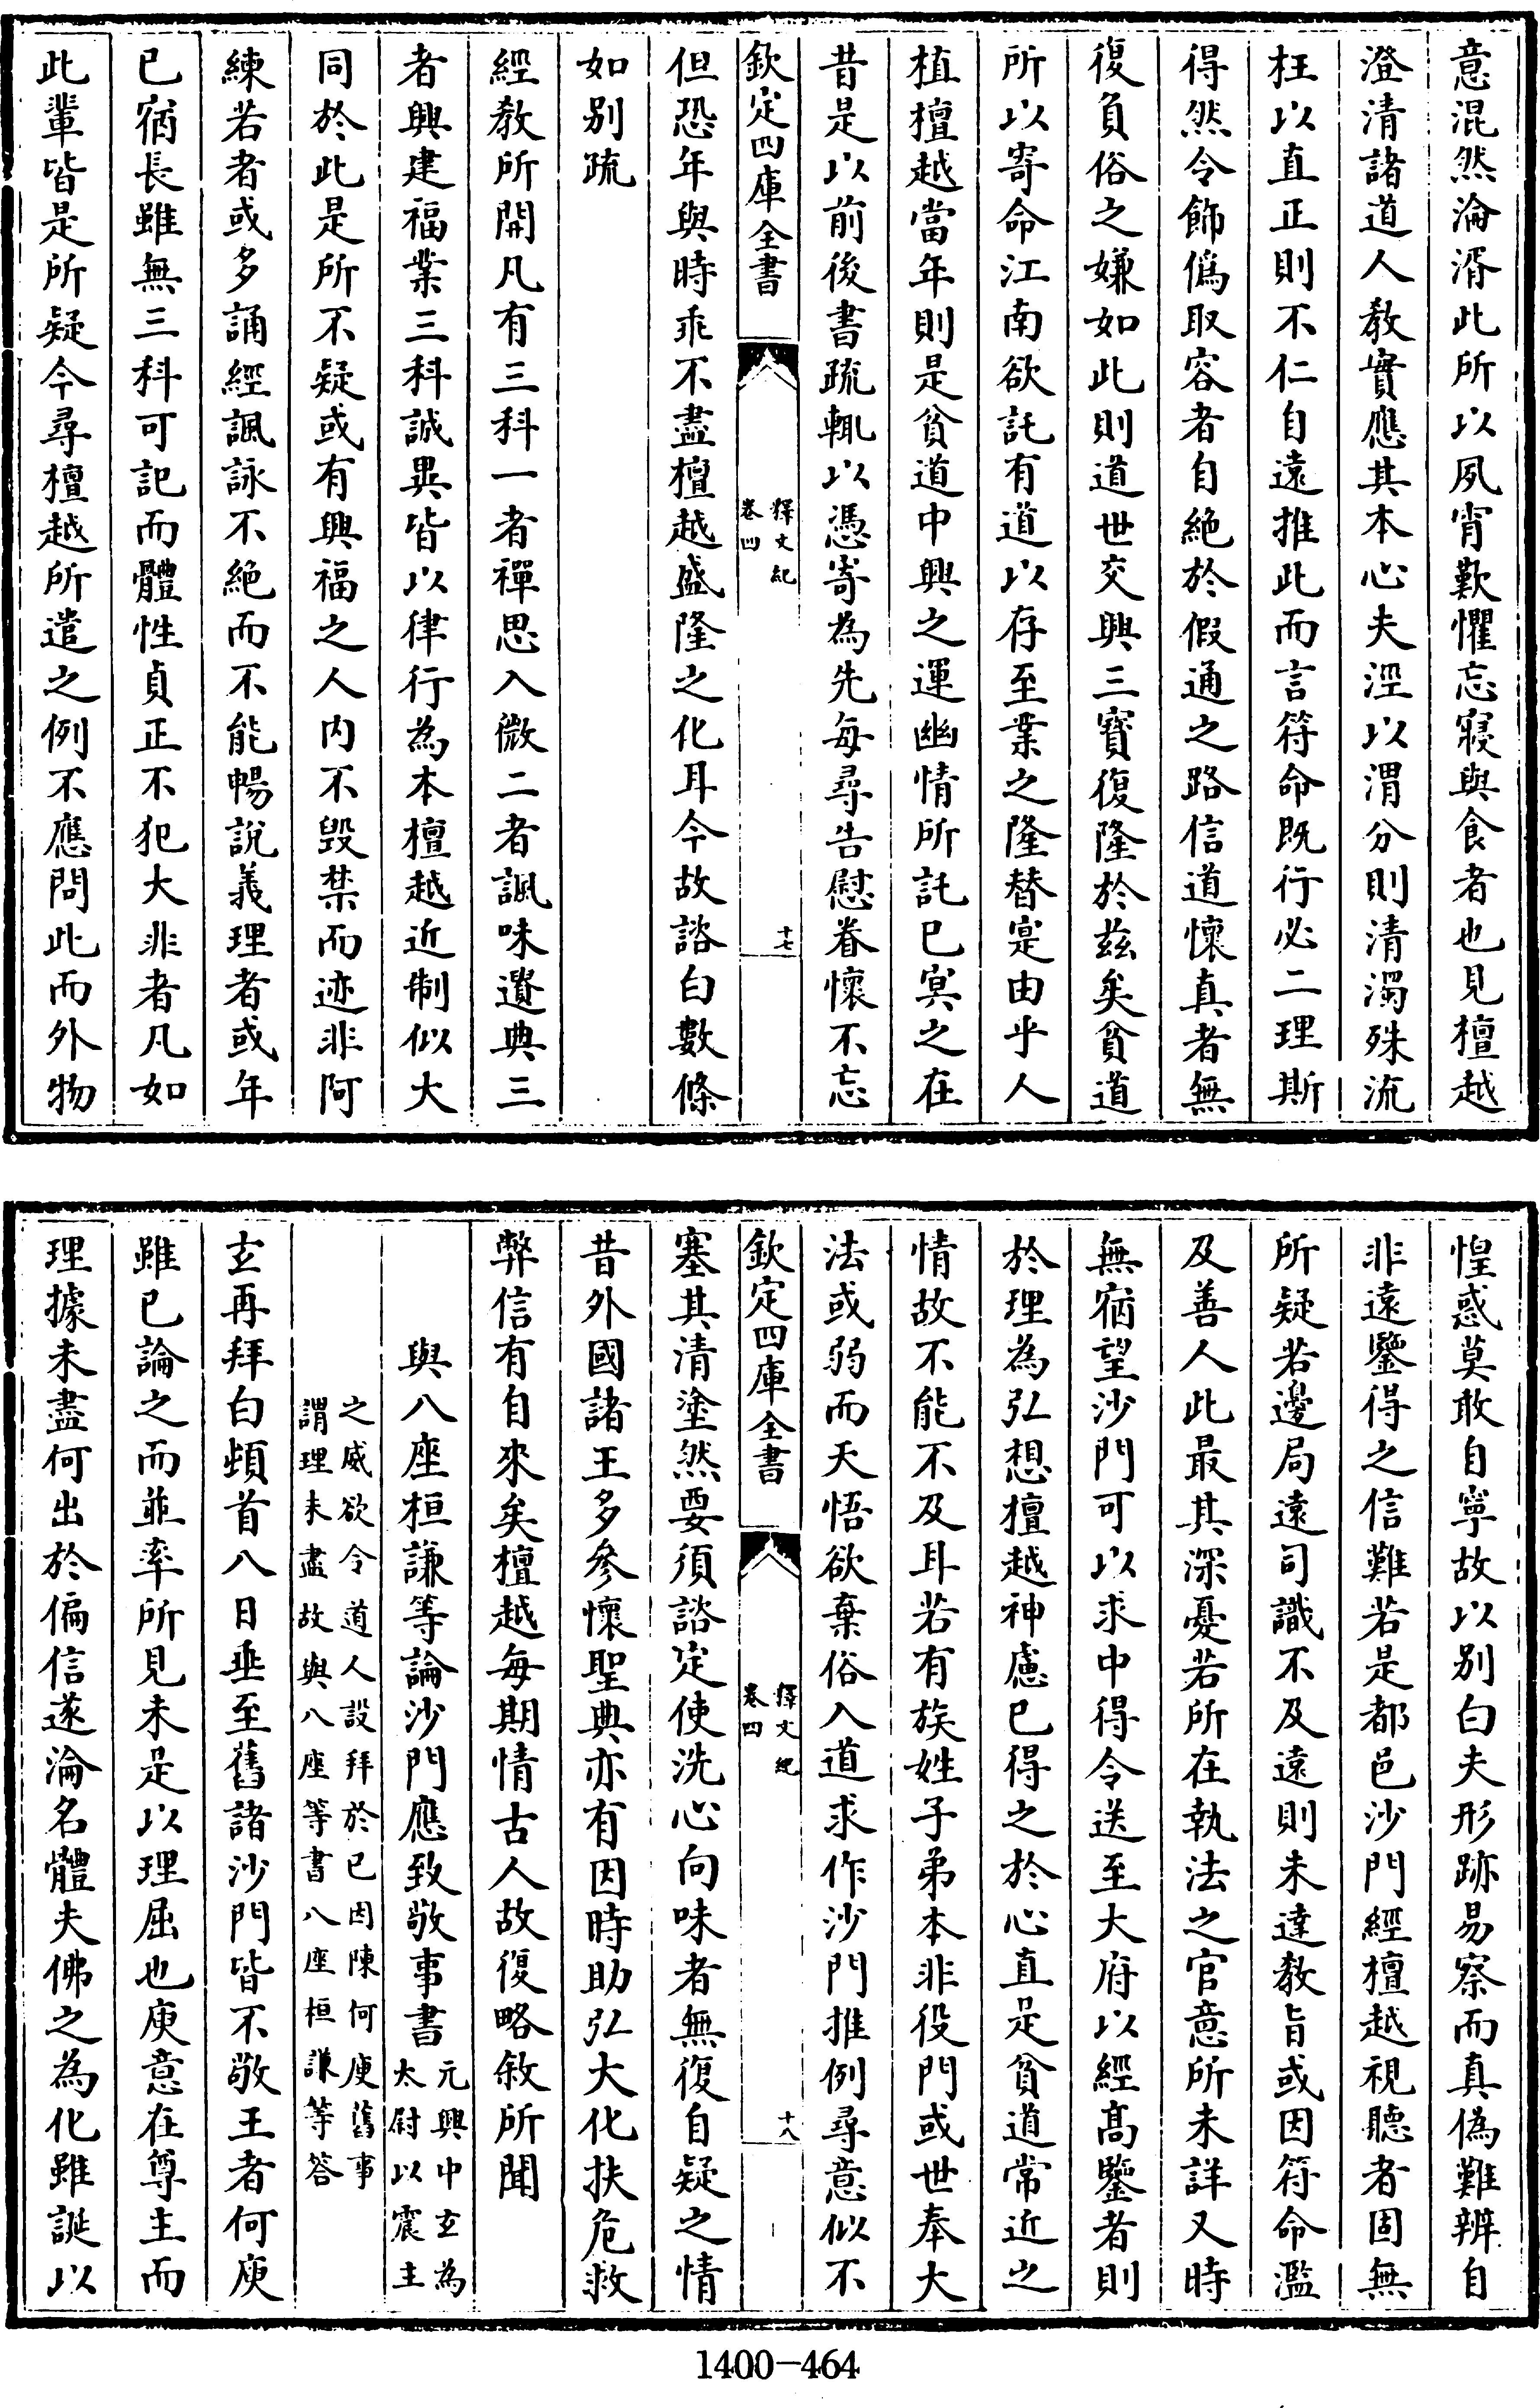 意混然淪湑此所以夙宵歎懼忘寢與食者也見檀越
澄清諸道人教實應其本心夫涇以渭分則清濁殊流
枉以直正則不仁自遠推此而言符命既行必二理斯
得然令飾偽取容者自絶於假通之路信道懷真者無
復負俗之嫌如此則道世交興三寶復隆於兹矣貧道
所以寄命江南欲託有道以存至業之隆替寔由乎人
植檀越當年則是貧道中興之運幽情所託已冥之在
昔是以前後書疏輒以憑寄為先每尋告慰眷懷不忘
欽定四庫全書
釋文紀
卷四
十七
但恐年與時乖不盡檀越盛隆之化耳今故諮白數條
如别疏
經教所開凡有三科一者禪思入微二者諷味遺典三
者興建福業三科誠異皆以律行為本檀越近制似大
同於此是所不疑或有興福之人内不毁禁而迹非阿
練若者或多誦經諷詠不絶而不能暢說義理者或年
已宿長雖無三科可記而體性貞正不犯大非者凡如
此輩皆是所疑今尋檀越所遣之例不應問此而外物
惶惑莫敢自寧故以别白夫形跡易察而真偽難辨自
非遠鑒得之信難若是都邑沙門經檀越視聽者固無
所疑若邊局遠司識不及遠則未達教旨或因符命濫
及善人此最其深憂若所在執法之官意所未詳又時
無宿望沙門可以求中得令送至大府以經高鑒者則
於理為弘想檀越神慮已得之於心直是貧道常近之
情故不能不及耳若有族姓子弟本非役門或世奉大
法或弱而天悟欲棄俗入道求作沙門推例尋意似不
欽定四庫全書
釋文紀
卷四
十八
塞其清塗然要須諮定使洗心向味者無復自疑之情
昔外國諸王多參懷聖典亦有因時助弘大化扶危救
弊信有自來矣檀越每期情古人故復略敘所聞
與八座桓謙等論沙門應致敬事書元興中玄為
太尉以震主
之威欲令道人設拜於已因陳何庾舊事
謂理未盡故與八座等書八座桓謙等答
玄再拜白頓首八日垂至舊諸沙門皆不敬王者何庾
雖已論之而並率所見未是以理屈也庾意在尊主而
理據未盡何出於偏信遂淪名體夫佛之為化雖誕以
1400-464